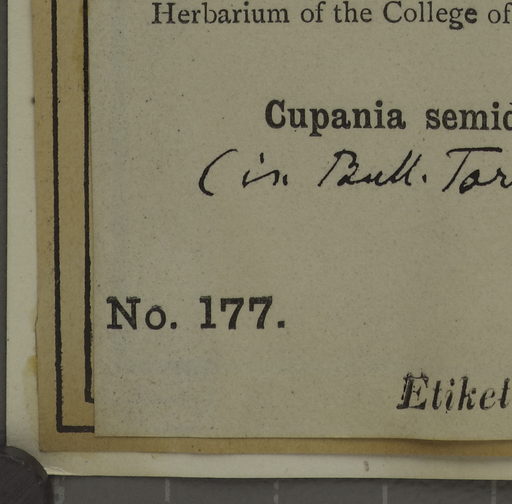 Herbarium of the College of
Cupania semid
(in Bull. Tor
No. 177.
Etiket